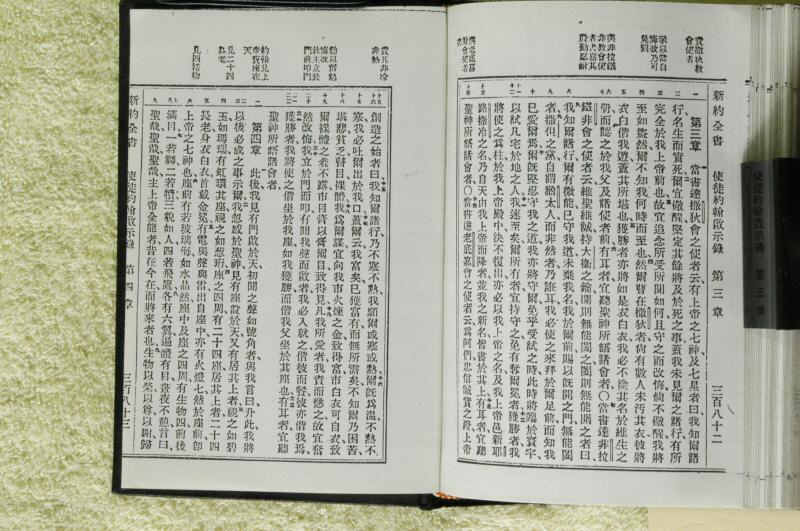 新約全書 使徒約翰啟示錄 第三章 三百八十二
責撒狄敎會使者
示以當自悔改乃可免罰
與非拉鐵非敎會使者書嘉其殷勤忍耐
第三章 當書達撒狄會之使者云有上帝之七神及七星者曰我知爾諸
行名生而實死爾宜儆醒堅定其餘將及於死之事蓋我未見爾之諸行有所
完全於我上帝前也故宜追念所受所聞如何且守之而改悔倘不儆醒我將
至如盜然爾不知我何時而至也然爾曹在撒狄者尚有數人未汚其衣彼將
衣白偕我遊蓋其所堪也獲勝者亦將如是衣白衣我必不塗其名於維生之
册而認之於我父及諸使者前有耳者宜聽聖神所語諸會者〇當書達非拉
鐵非會之使者云維聖維誠持大衛之鑰開則無能闔之闔則無能開之者曰
我知爾諸行爾有微能已守我道未棄我名我於爾前賜以旣開之門無能闔
者撒但之黨自謂猶太人而非然者乃誑耳我必使之來拜於爾足前而知我
已愛爾焉爾旣堅忍守我之道我亦將守爾免乎受試之時此時將臨於寰宇
以試凡宅於地之人我速至矣爾所有者宜持守之免有奪爾冕者獲勝者我
將使之爲柱於我上帝殿中決不復出亦必以我上帝之名及我上帝邑新耶
路撒冷之名乃自天由我上帝而降者並我之新名皆書於其上有耳者宜聽
聖神所語諸會者〇當書達老底嘉會之使者云爲阿們忠信誠實之證上帝
責其非冷非熱
勸以當勉悔改
救主立於門前叩門
約翰見上帝寶座在天
見二十四長老
見四活物
創造之始者曰我知爾諸行乃不寒不熱我願爾或寒或熱爾旣爲溫不熱不
寒我必吐爾出於我口蓋爾云我富矣已獲富有而無所需矣不知爾乃困苦
堪悲貧乏瞽目裸體我爲爾謀宜向我市火煉之金致得富市白衣可自衣致
爾裸體之羞不露市目膏以膏爾目致得見凡我所愛者我責而懲之故宜奮
然改悔我立於門而叩有聞我聲而啟者我必入就之偕彼而餐彼亦偕我焉
獲勝者我將使之偕坐於我座如我獲勝而偕我父坐於其座也有耳者宜聽
聖神所語諸會者
第四章 此後我見有門啟於天初聞之聲如號角者與我言曰升此我將
以後必成之事示爾我忽感於聖神見有座設於天又有居其上者視之如碧
玉如瑪瑙有虹環其座視之如葱珩座之四周有二十四座居其上者二十四
長老身衣白衣首戴金冕有電與聲與雷出自座中亦有火燈七然於座前卽
上帝之七神也座前有若玻璃海如水晶然座中及座之四周有生物四前後
滿目一若獅二若犢三貌如人四若飛鷹各有六翼遍體有目晝夜不憩言曰
聖哉聖哉聖哉主上帝全能者昔在今在而將來者也生物以榮以尊以謝歸
新約全書 使徒約翰啟示錄 第四章 三百八十三